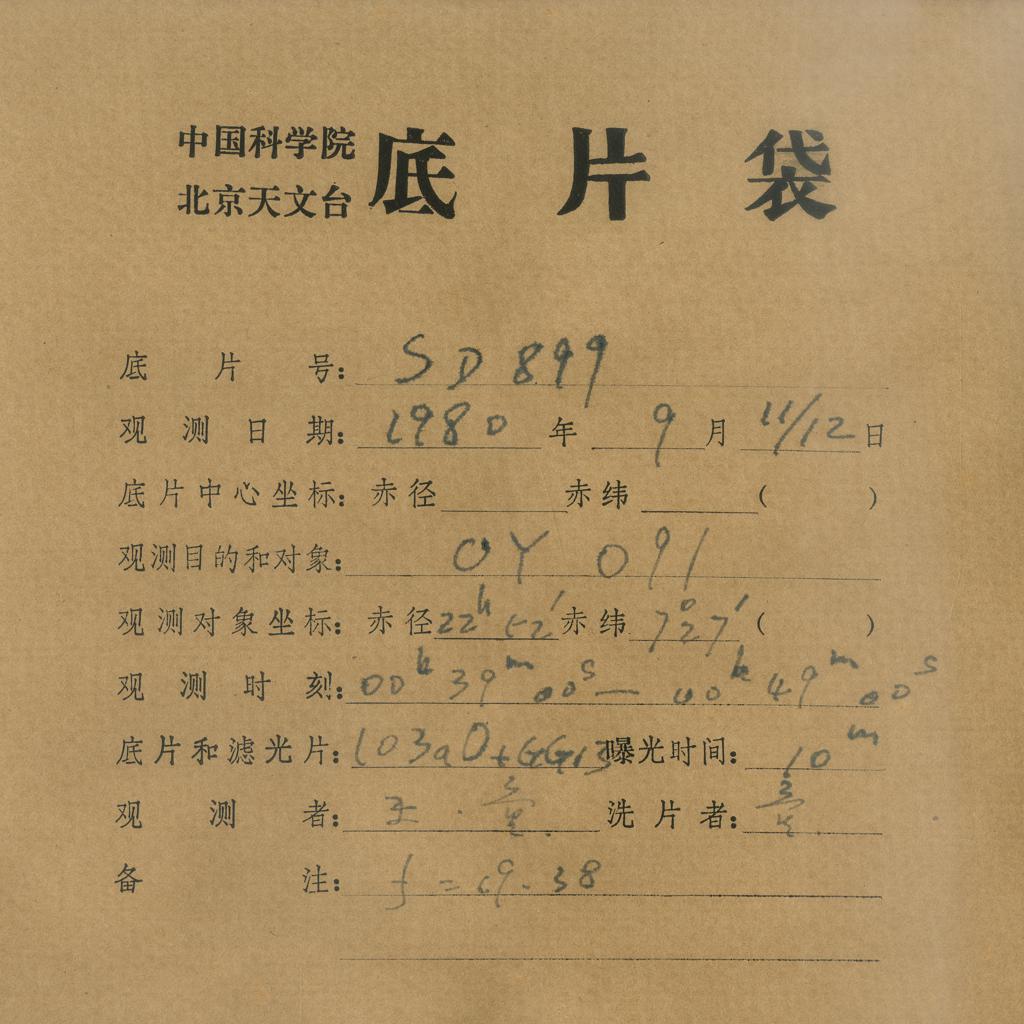 中国科学院
北京天文台
底片袋
底片号: SD 899
观测日期: 1980 年 9 月 11/12 日
底片中心坐标: 赤径 赤纬 ( )
观测目的和对象: OY 091
观测对象坐标: 赤径 22h 52′ 赤纬 7°27′ ( )
观测时刻: 00h 39m 00s — 00h 49m 00s
底片和滤光片: 103aO+GG13 曝光时间: 10m
观测者: 王.
洗片者:
备注: f = 19.38